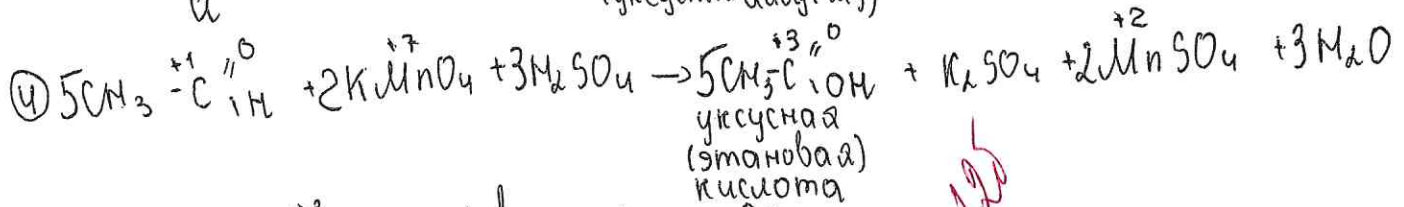 ④ 5CH₃-C⁺¹(=O)-H + 2KMn⁺⁷O₄ + 3H₂SO₄ → 5CH₃-C⁺³(=O)-OH + K₂SO₄ + 2Mn⁺²SO₄ + 3H₂O
уксусная
(этановая)
кислота